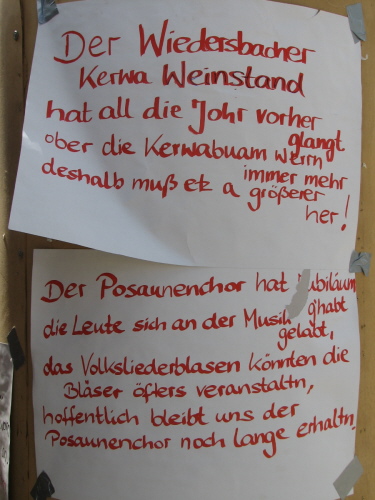 Der Wiedersbacher
Kerwa Weinstand
hat all die Johr vorher
glangt
ober die Kerwabuam werrn
immer mehr
deshalb muß etz a größerer
her!
Der Posaunenchor hat Jubiläum
g'habt
die Leute sich an der Musik
gelabt,
das Volksliederblasen könnten die
Bläser öfters veranstaltn,
hoffentlich bleibt uns der
Posaunenchor noch lange erhaltn.